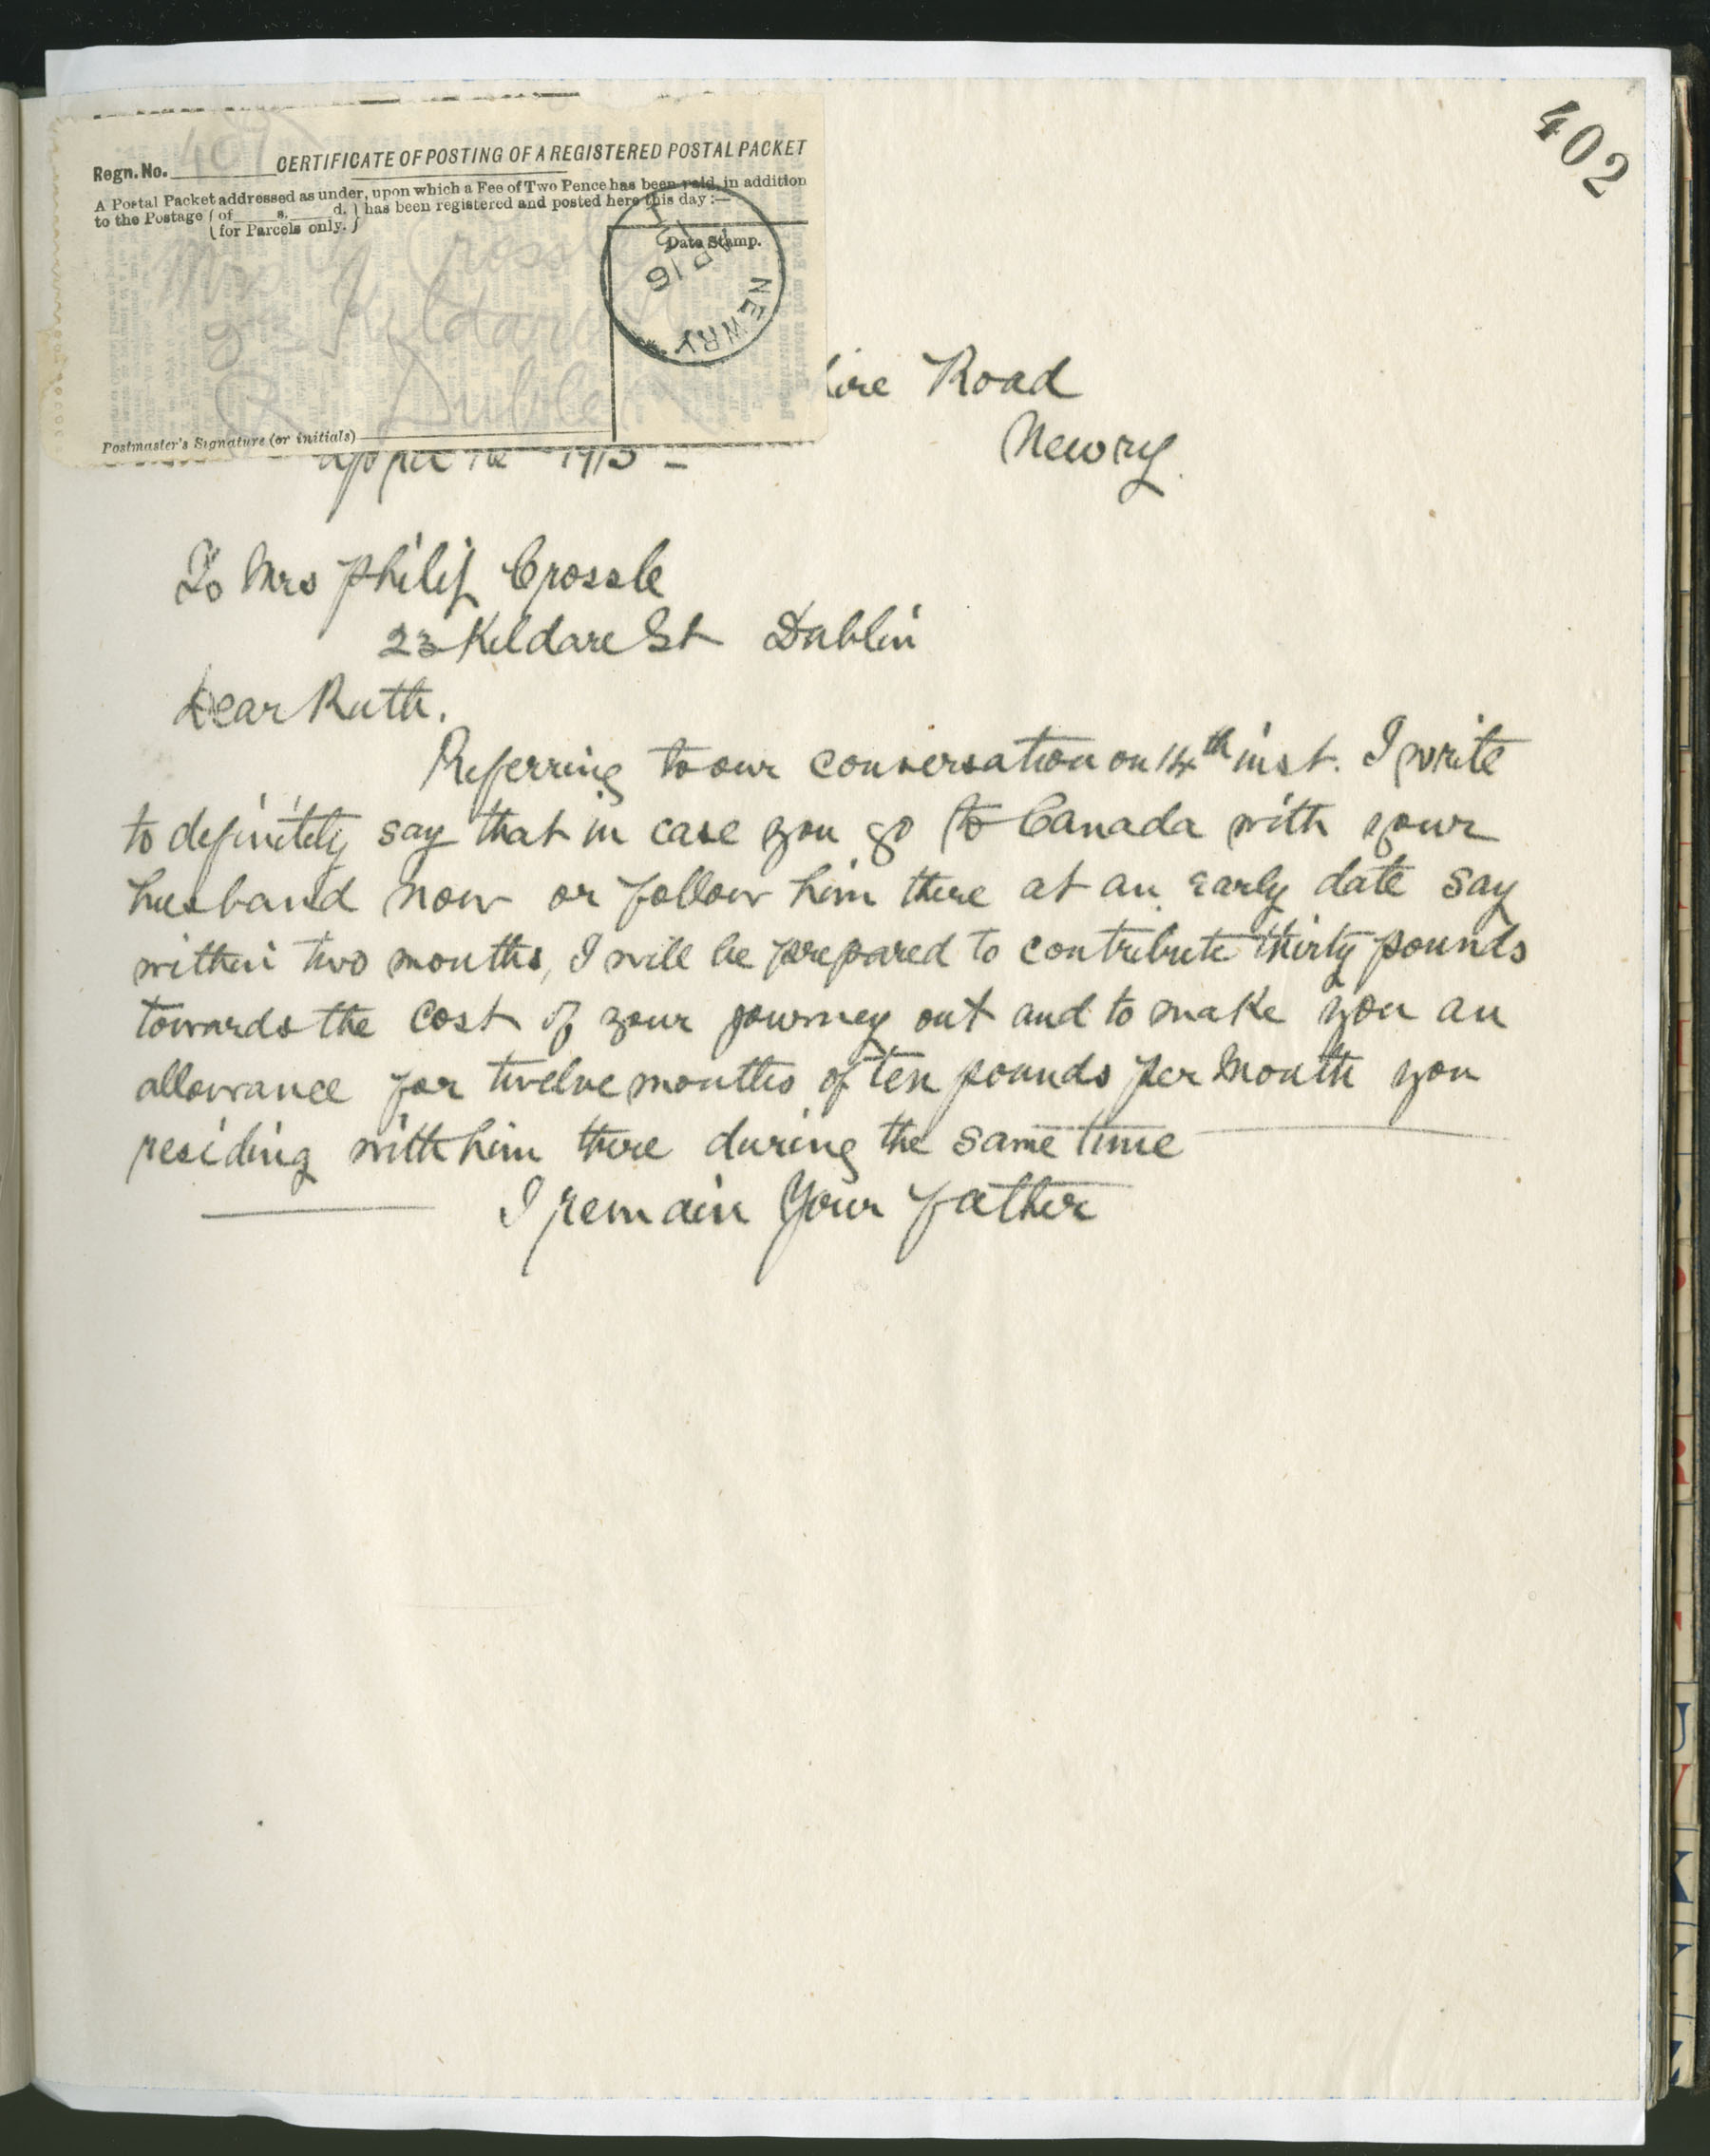 402
Regn. No. 407 CERTIFICATE OF POSTING OF A REGISTERED POSTAL PACKET
A Postal Packet addressed as under, upon which a Fee of Two Pence has been paid, in addition
to the Postage { of s. d. } has been registered and posted here this day:—
{ for Parcels only. }
Date Stamp.
NEWRY
AP 16
13
Mrs Crossle
23 Kildare St
Dublin
Postmaster's Signature (or initials)
ire Road
Newry.
April 16 1913 -
To Mrs Philip Crossle
23 Kildare St Dublin
Dear Ruth.
Referring to our conversation on 14th inst. I write
to definitely say that in case you go to Canada with your
husband now or follow him there at an early date say
within two months, I will be prepared to contribute thirty pounds
towards the cost of your journey out and to make you an
allowance for twelve months of ten pounds per month you
residing with him there during the same time
I remain Your father